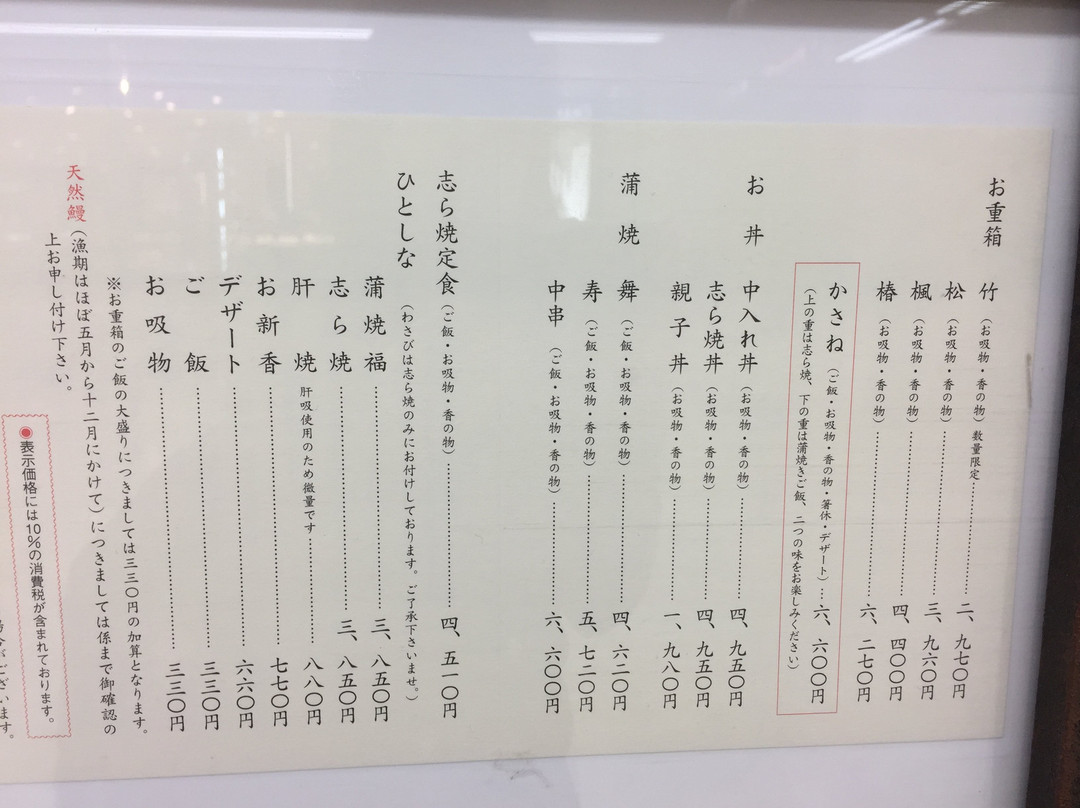 お重箱
竹（お吸物・香の物）数量限定……二、九七〇円
松（お吸物・香の物）……三、九六〇円
楓（お吸物・香の物）……四、四〇〇円
椿（お吸物・香の物）……六、二七〇円
かさね（ご飯・お吸物・香の物・箸休・デザート）…六、六〇〇円
（上の重は志ら焼、下の重は蒲焼きご飯、二つの味をお楽しみください）
お丼
中入れ丼（お吸物・香の物）……四、九五〇円
志ら焼丼（お吸物・香の物）……四、九五〇円
親子丼（お吸物・香の物）……一、九八〇円
蒲焼
舞（ご飯・お吸物・香の物）……四、六二〇円
寿（ご飯・お吸物・香の物）……五、七二〇円
中串（ご飯・お吸物・香の物）……六、六〇〇円
志ら焼定食（ご飯・お吸物・香の物）……四、五一〇円
ひとしな（わさびは志ら焼のみにお付けしております。ご了承下さいませ。）
蒲焼福……三、八五〇円
志ら焼……三、八五〇円
肝焼 肝吸使用のため微量です……八八〇円
お新香……七七〇円
デザート……六六〇円
ご飯……三三〇円
お吸物……三三〇円
※お重箱のご飯の大盛りにつきましては三三〇円の加算となります。
天然鰻（漁期はほぼ五月から十二月にかけて）につきましては係まで御確認の
上お申し付け下さい。
◉表示価格には10％の消費税が含まれております。
がございます。